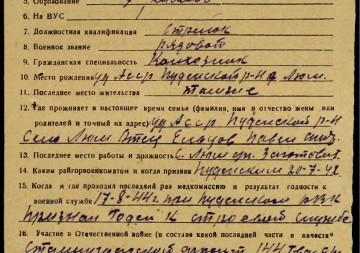 5. Образование 4 класса
6. На ВУС
7. Должностная квалификация Стрелок
8. Военное звание рядовой
9. Гражданская специальность Колхозник
10. Место рождения уд АССР Пудемский р-н с Люм.
11. Последнее место жительства
12. Где проживает в настоящее время семья (фамилия, имя и отчество жены или
родителей и точный адрес) уд АССР Пудемский р-н
Село Люм Отец Павел
13. Последнее место работы и должность с Люм
14. Каким райгорвоенкоматом и когда призван Пудемским 20-7-42
15. Когда и где проходил последний раз медкомиссию и результат годности к
военной службе 17-8-44г. при Пудемском РВК
Признан Годен к строевой службе
16. Участие в Отечественной войне (в составе какой последней части и качеств
Сталинградский фронт 144